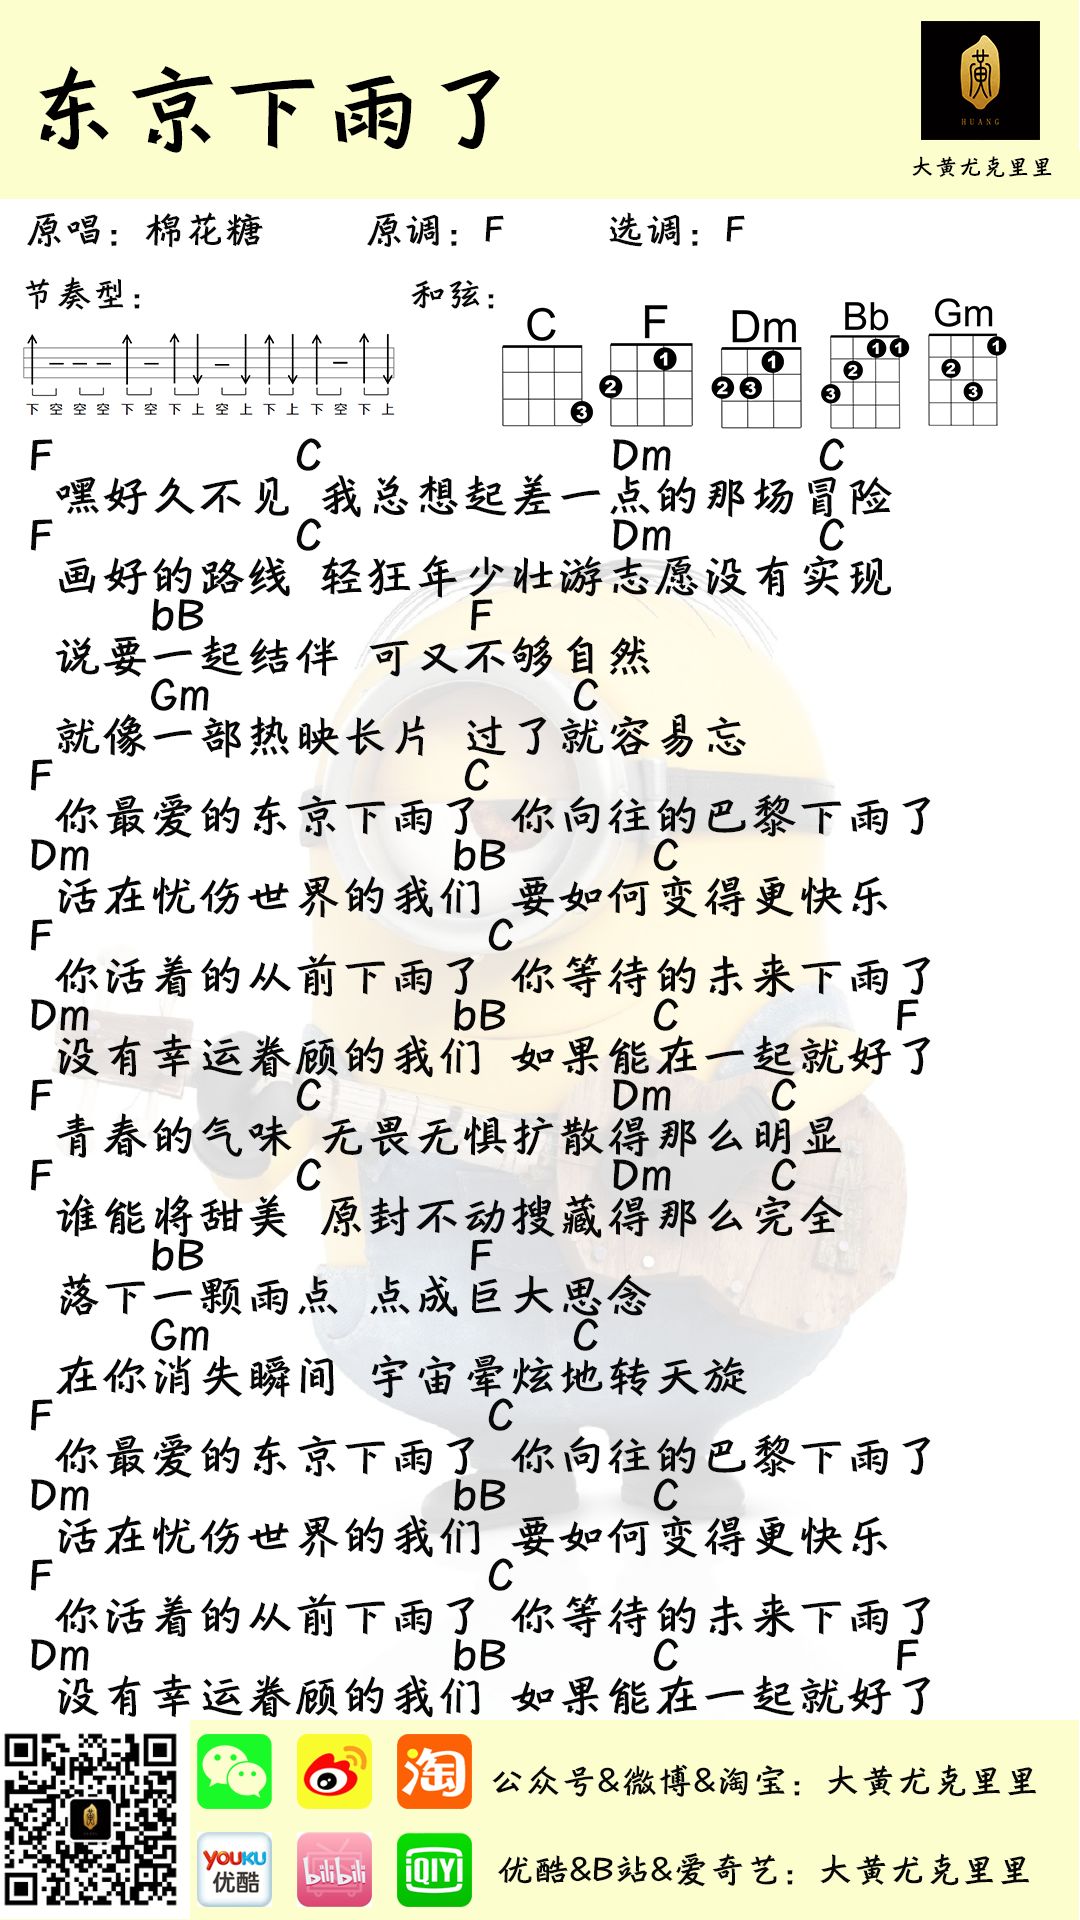 东京下雨了
黄
HUANG
大黄尤克里里
原唱：棉花糖 原调：F 选调：F
节奏型： 和弦：
C F Dm Bb Gm
3 1 2 1 2 3 1 1 2 3 1 2 3
下 空 空 空 下 空 下 上 空 上 下 上 下 空 下 上
F C Dm C
嘿好久不见 我总想起差一点的那场冒险
F C Dm C
画好的路线 轻狂年少壮游志愿没有实现
bB F
说要一起结伴 可又不够自然
Gm C
就像一部热映长片 过了就容易忘
F C
你最爱的东京下雨了 你向往的巴黎下雨了
Dm bB C
活在忧伤世界的我们 要如何变得更快乐
F C
你活着的从前下雨了 你等待的未来下雨了
Dm bB C F
没有幸运眷顾的我们 如果能在一起就好了
F C Dm C
青春的气味 无畏无惧扩散得那么明显
F C Dm C
谁能将甜美 原封不动搜藏得那么完全
bB F
落下一颗雨点 点成巨大思念
Gm C
在你消失瞬间 宇宙晕炫地转天旋
F C
你最爱的东京下雨了 你向往的巴黎下雨了
Dm bB C
活在忧伤世界的我们 要如何变得更快乐
F C
你活着的从前下雨了 你等待的未来下雨了
Dm bB C F
没有幸运眷顾的我们 如果能在一起就好了
淘
公众号&微博&淘宝：大黄尤克里里
YOUKU
优酷
bilibili
iQIYI
优酷&B站&爱奇艺：大黄尤克里里